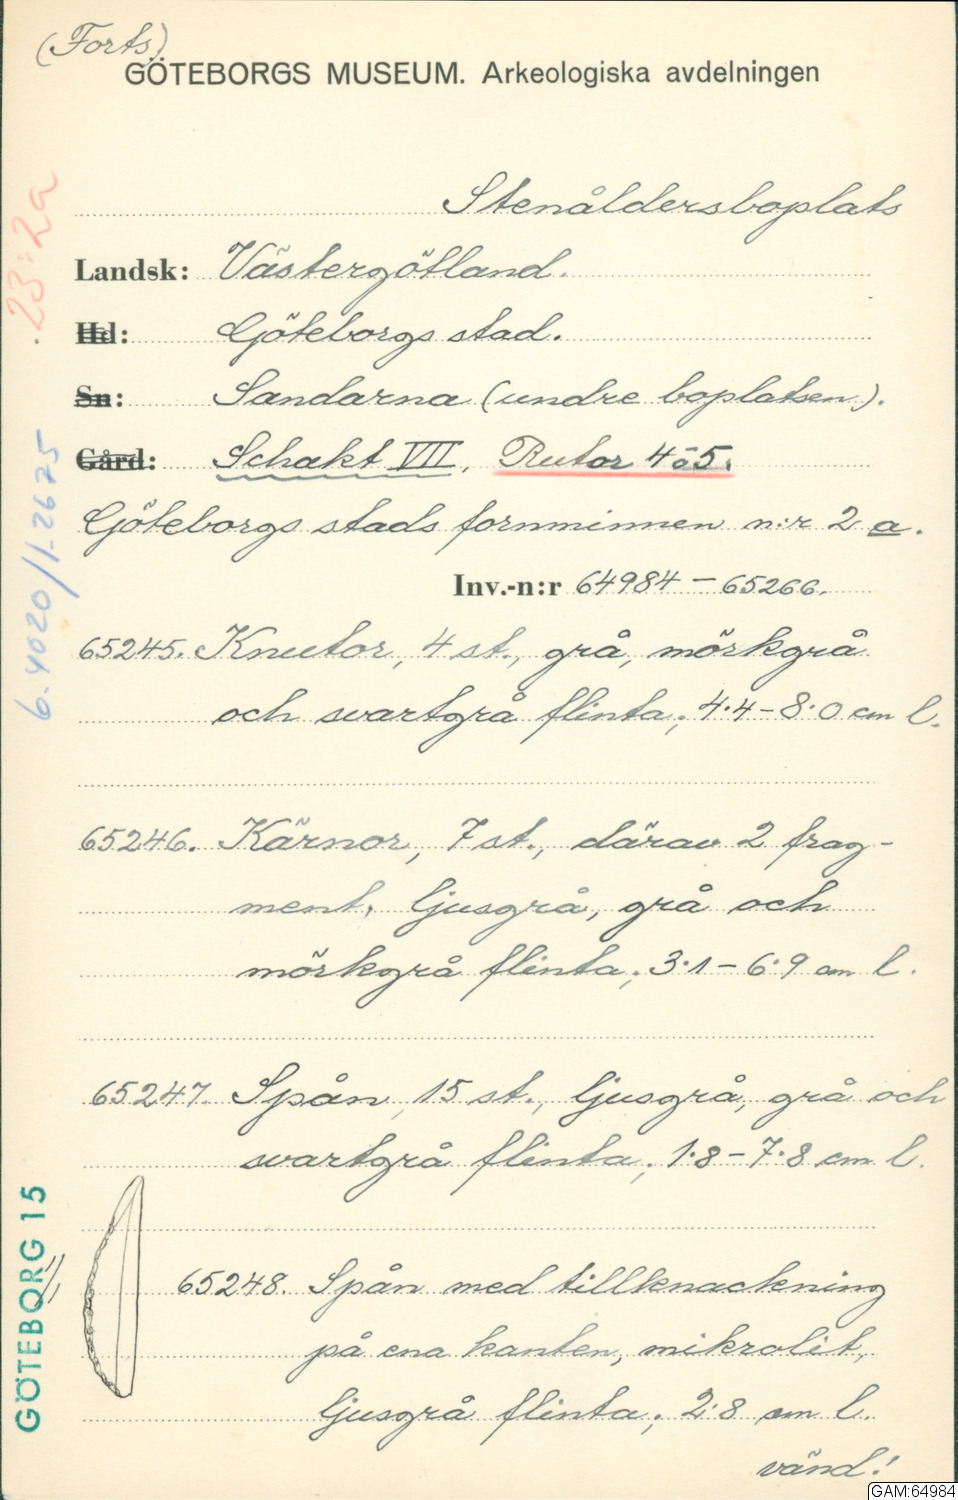 (Forts)
GÖTEBORGS MUSEUM. Arkeologiska avdelningen
Stenåldersboplats
Landsk: Västergötland.
Hd: Göteborgs stad.
Sn: Sandarna (undre boplatsen).
Gård: Schakt VII, Rutor 4 o 5.
Göteborgs stads fornminnen n:r 2 a.
Inv.-n:r 64984 — 65266.
65245. Knutor, 4 st., grå, mörkgrå
och svartgrå flinta; 4·4 – 8·0 cm l.
65246. Kärnor, 7 st., därav 2 frag-
ment, ljusgrå, grå och
mörkgrå flinta; 3·1 – 6·9 cm l.
65247. Spån, 15 st., ljusgrå, grå och
svartgrå flinta; 1·8 – 7·8 cm l.
65248. Spån med tillknackning
på ena kanten, mikrolit,
ljusgrå flinta; 2·8 cm l.
vänd!
23:2a
6.4020/1-2675
GÖTEBORG 15
GAM:64984